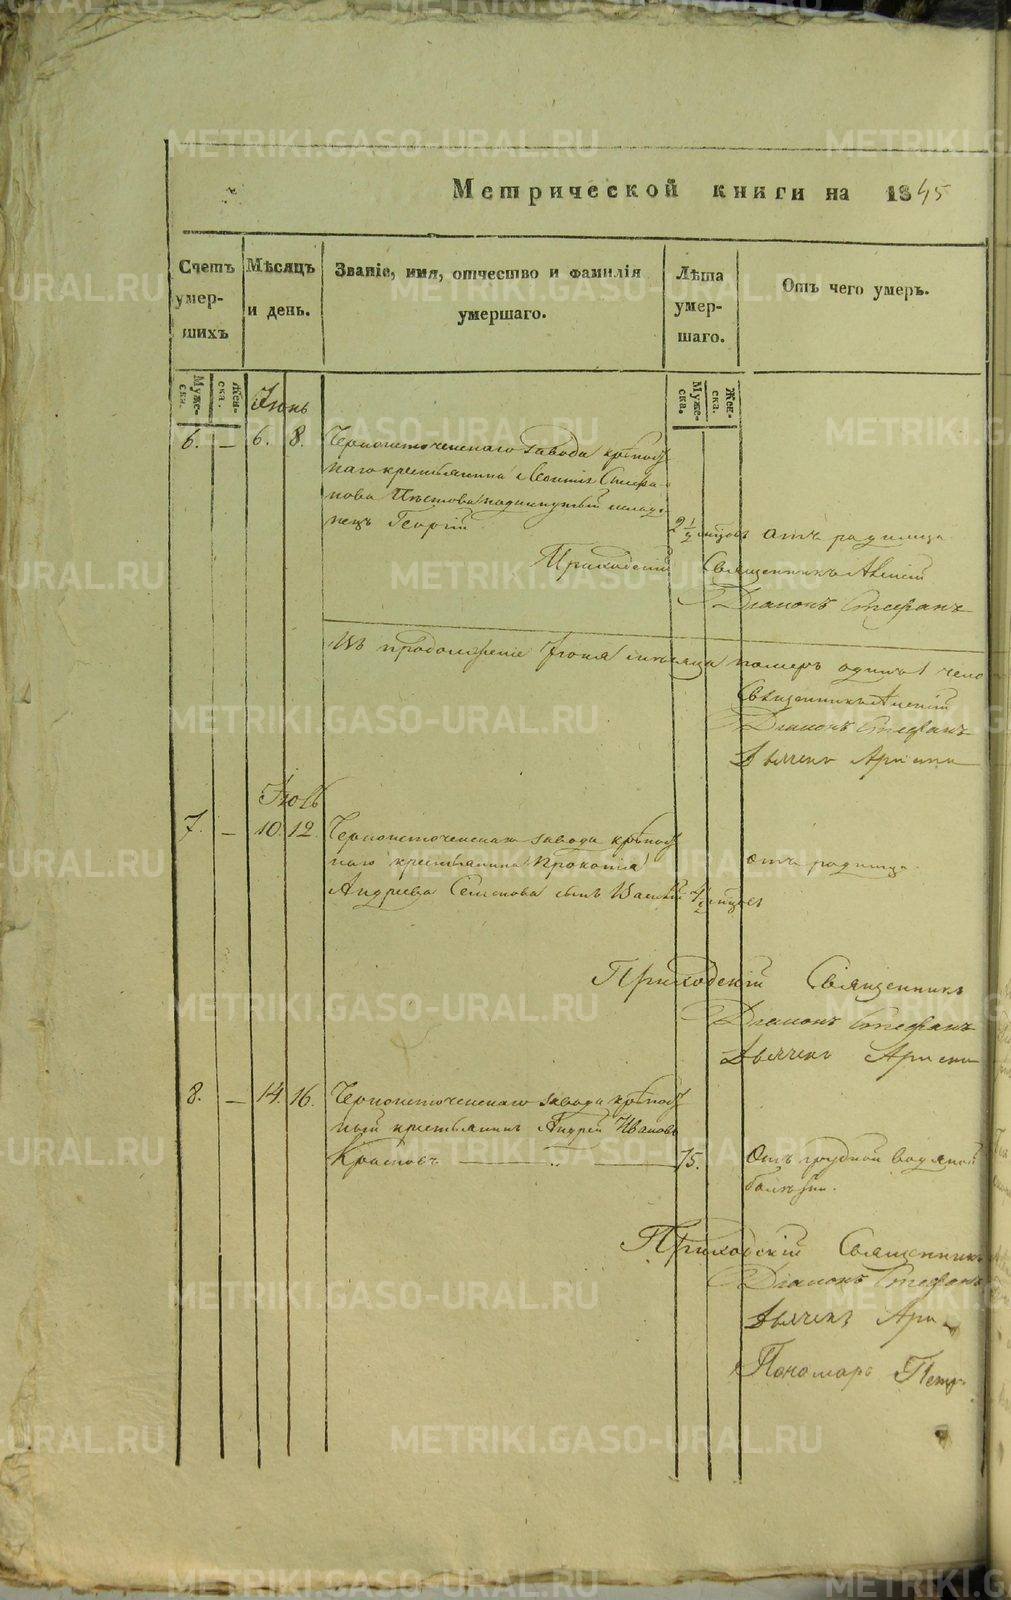 Метрической книги на 1845
Счетъ умер-шихъ
Мѣсяцъ и день.
Званіе, имя, отчество и фамилія умершаго.
Лѣта умер-шаго.
Отъ чего умеръ.
Муже-ска.
Жен-ска.
Муже-ска.
Жен-ска.
Іюнь
6. — 6. 8. Черноисточенскаго завода крѣпост
наго крестьянина Леонтія Стефа-
нова подкинутый младе-
нецъ Георгій
2 1/2 мѣсцовъ отъ родимца
Приходскій Священникъ Алексій
Діаконъ Стефанъ
Въ продолженіе Іюня мѣсяца померъ одинъ 1 чело
Священникъ Алексій
Діаконъ Стефанъ
Дьячекъ
Іюль
7. — 10. 12. Черноисточенскаго завода крѣпост
наго крестьянина Прокопія
Андреева сынъ Василій
отъ родимца
Приходскій Священникъ
Діаконъ Стефанъ
Дьячекъ
8. — 14. 16. Черноисточенскаго завода крѣпост
ный крестьянинъ Андрей Ивановъ
75. Отъ грудной водяной
болѣзни.
Приходскій Священникъ
Діаконъ Стефанъ
Дьячекъ
Пономарь Петръ
METRIKI.GASO-URAL.RU